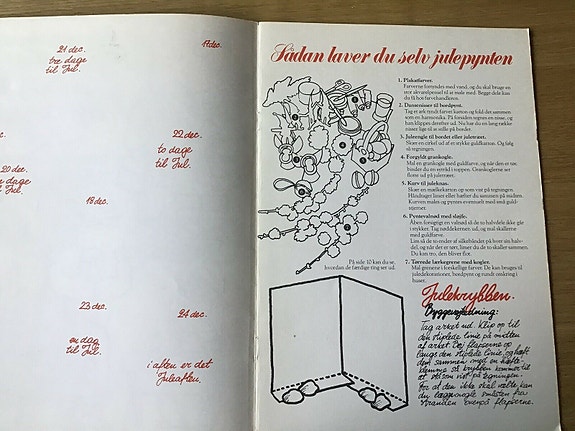 21 dec.
tre dage
til Jul.
17 dec.
22 dec.
to dage
til Jul.
20 dec.
dage
Jul.
18 dec.
23 dec.
en dag
til Jul.
24 dec.
i aften er det
Juleaften.
Sådan laver du selv julepynten
1. Plakatfarver.
Farverne fortyndes med vand, og du skal bruge en
stor akvarelpensel til at male med. Begge dele kan
du få hos farvehandleren.
2. Dansenisser til bordpynt.
Tag et ark tyndt farvet karton og fold det sammen
som en harmonika. På forsiden tegnes en nisse, og
han klippes derefter ud. Nu har du en lang række
nisser lige til at stille på bordet.
3. Juleengle til bordet eller juletræet.
Skær en cirkel ud af et stykke guldkarton. Og følg
så tegningen.
4. Forgyldt grankogle.
Mal en grankogle med guldfarve, og når den er tør,
binder du en sytråd i toppen. Grankoglerne ser
flotte ud på juletræet.
5. Kurv til juleknas.
Skær en mælkekarton op som vist på tegningen.
Håndtaget limes eller hæftes du sammen på midten.
Kurven males og pyntes eventuelt med små guld-
stjerner.
6. Pyntevalnød med sløjfe.
Åben forsigtigt en valnød så de to halvdele ikke går
i stykker. Tag nøddekernen ud, og mal skallerne
med guldfarve.
Lim så de to ender af silkebåndet på hver sin halv-
del, og når det er tørt, limer du de to skaller sammen.
Du kan tro, den bliver flot.
7. Tørrede lærkegrene med kogler.
Mal grenene i forskellige farver. De kan bruges til
juledekorationer, bordpynt og rundt omkring i
huset.
På side 10 kan du se,
hvordan de færdige ting ser ud.
Julekrybben.
Byggevejledning:
Tag arket ud. Klip op til
den stiplede linie på midten
af arket. Bøj flaperne op
langs den stiplede linie, og hæft
dem sammen med en hæfte-
klemme så krybben kommer til
at stå som vist på tegningen.
For at den ikke skal vælte, kan
du lægge nogle småsten fra
stranden ovenpå flaperne.